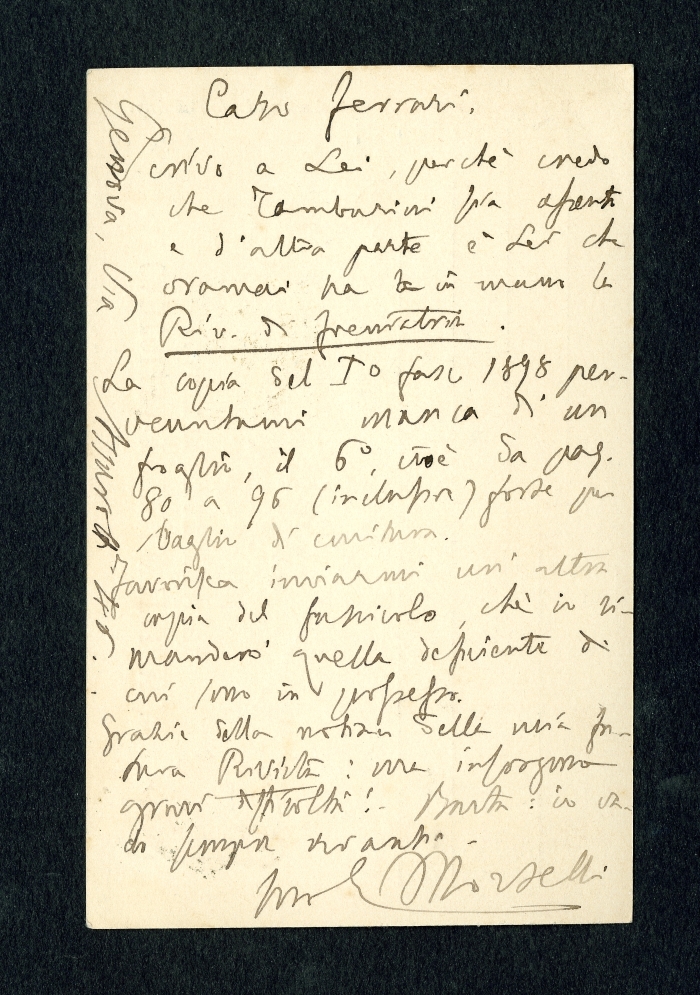 Caro Ferrari,
Scrivo a Lei, perchè credo
che Tamburini sia assente
e d'altra parte è Lei che
oramai ha in mano la
Riv. di freniatria.
La copia del Iº fasc 1898 per-
venutami manca di un
foglio, il 6º, cioè da pag.
80 a 96 (inclusive) forse per
sbaglio di cucitura.
Favorisca inviarmi un'altra
copia del fascicolo, chè io ri-
manderò quella deficiente di
cui sono in possesso.
Grazie della notizia della mia fu-
tura Rivista: ma insorgono
gravi difficoltà! - Basta: io va-
do sempre avanti. -
Morselli
Genova, Via Assarotti 46.